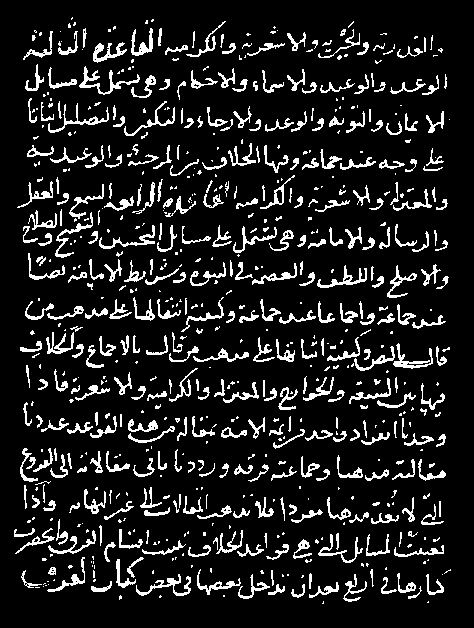 والقدرية والجبرية والاشعرية والكرامية القاعدة الثالثة
الوعد والوعيد والاسماء والاحكام وهى تشتمل على مسايل
الايمان والتوبة والوعيد والارجاء والتكفير والتضليل اثباتا
على وجه عند جماعة وفيها الخلاف بين المرجئة والوعيدية
والمعتزلة والاشعرية والكرامية القاعدة الرابعة السمع والعقل
والرسالة والامامة وهى تشتمل على مسايل التحسين والتقبيح والصلاح
والاصلح واللطف والعصمة فى النبوة وشرايط الامامة نصا
عند جماعة واجماعا عند جماعة وكيفية انتقالها على مذهب من
قال بالنص وكيفية اثباتها على مذهب من قال بالاجماع والخلاف
فيها بين الشيعة والخوارج والمعتزلة والكرامية والاشعرية فاذا
وجدنا انفراد واحد من ايمة الامة بمقالة من هذه القواعد عددنا
مقالته مذهبا وجماعته فرقة ورددنا باقى مقالاته الى الفروع
التى لا تعد مذهبا مفردا فلا تذهب المقالات الى غير النهاية واذا
تعينت المسايل التى هى قواعد الخلاف تبينت اقسام الفرق وانحصرت
كبارها فى اربع بعد ان تداخل بعضها فى بعض كبار الفرق